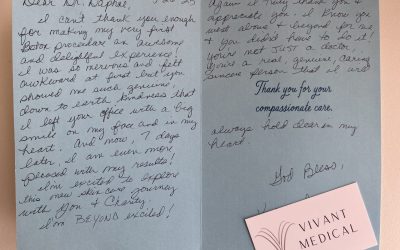 Dear Dr. Raphael,
I can't thank you enough
for making my very first
Botox procedure an awesome
and delightful experience!
I was so nervous and felt
awkward at first but you
showed me such genuine,
down to earth kindness that
I left your office with a big
smile on my face and in my
heart. And now, 7 days
later, I am even more
pleased with my results!
I'm excited to explore
this new skincare journey
with you & Charity.
I'm BEYOND excited!
Again I truly thank you &
appreciate you. I know you
went above & beyond for me
& you didn't have to do it!
You're not JUST a doctor,
you're a real, genuine, caring
sincere person that I will
Thank you for your
compassionate care.
always hold dear in my
heart.
God Bless,
VIVANT
MEDICAL